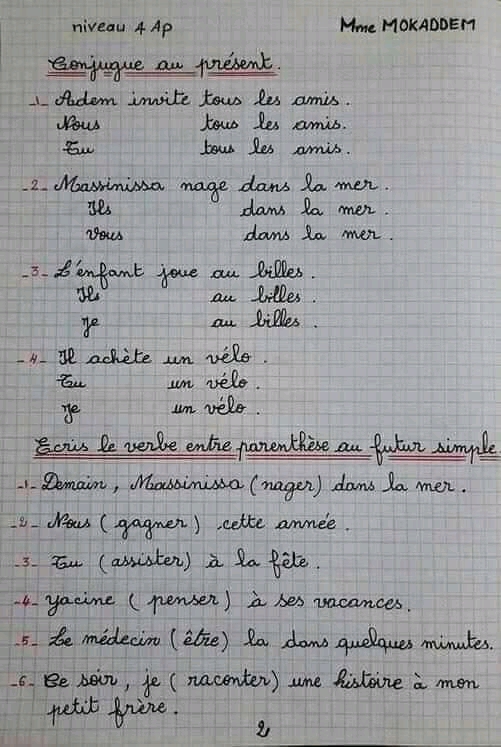 niveau 4 Ap Mme MOKADDEM
Conjugue au présent.
_1_ Adem invite tous les amis.
Nous tous les amis.
Tu tous les amis.
_2_ Massinissa nage dans la mer.
Ils dans la mer.
Vous dans la mer.
_3_ L'enfant joue au billes.
Ils au billes.
Je au billes.
_4_ Il achète un vélo.
Tu un vélo.
Je un vélo.
Ecris le verbe entre parenthèse au futur simple
_1_ Demain, Massinissa (nager) dans la mer.
_2_ Nous (gagner) cette année.
_3_ Tu (assister) à la fête.
_4_ Yacine (penser) à ses vacances.
_5_ Le médecin (être) la dans quelques minutes.
_6_ Ce soir, je (raconter) une histoire à mon
petit frère.
2